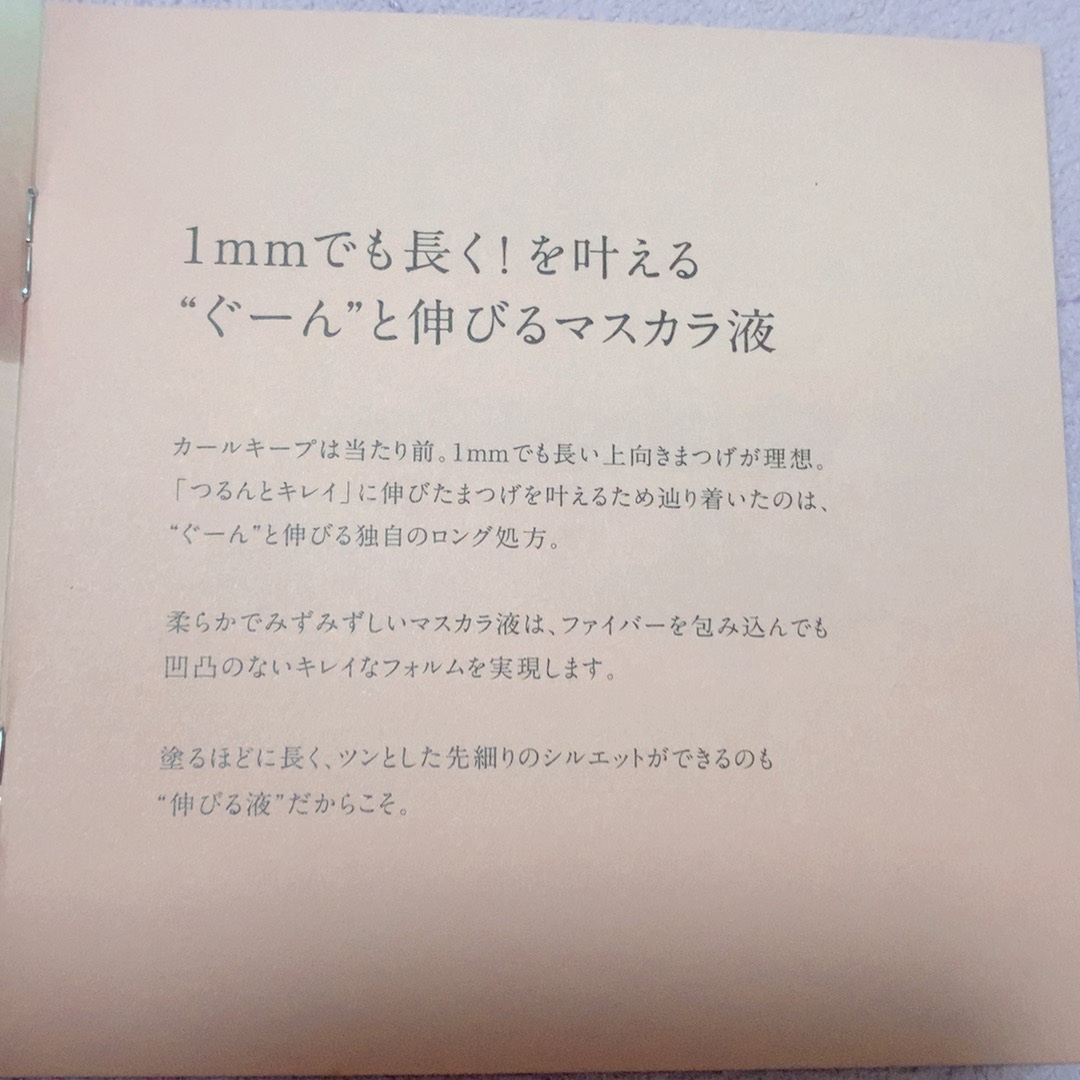 1mmでも長く!を叶える
“ぐーん”と伸びるマスカラ液
カールキープは当たり前。1mmでも長い上向きまつげが理想。
「つるんとキレイ」に伸びたまつげを叶えるため辿り着いたのは、
“ぐーん”と伸びる独自のロング処方。
柔らかでみずみずしいマスカラ液は、ファイバーを包み込んでも
凹凸のないキレイなフォルムを実現します。
塗るほどに長く、ツンとした先細りのシルエットができるのも
“伸びる液”だからこそ。